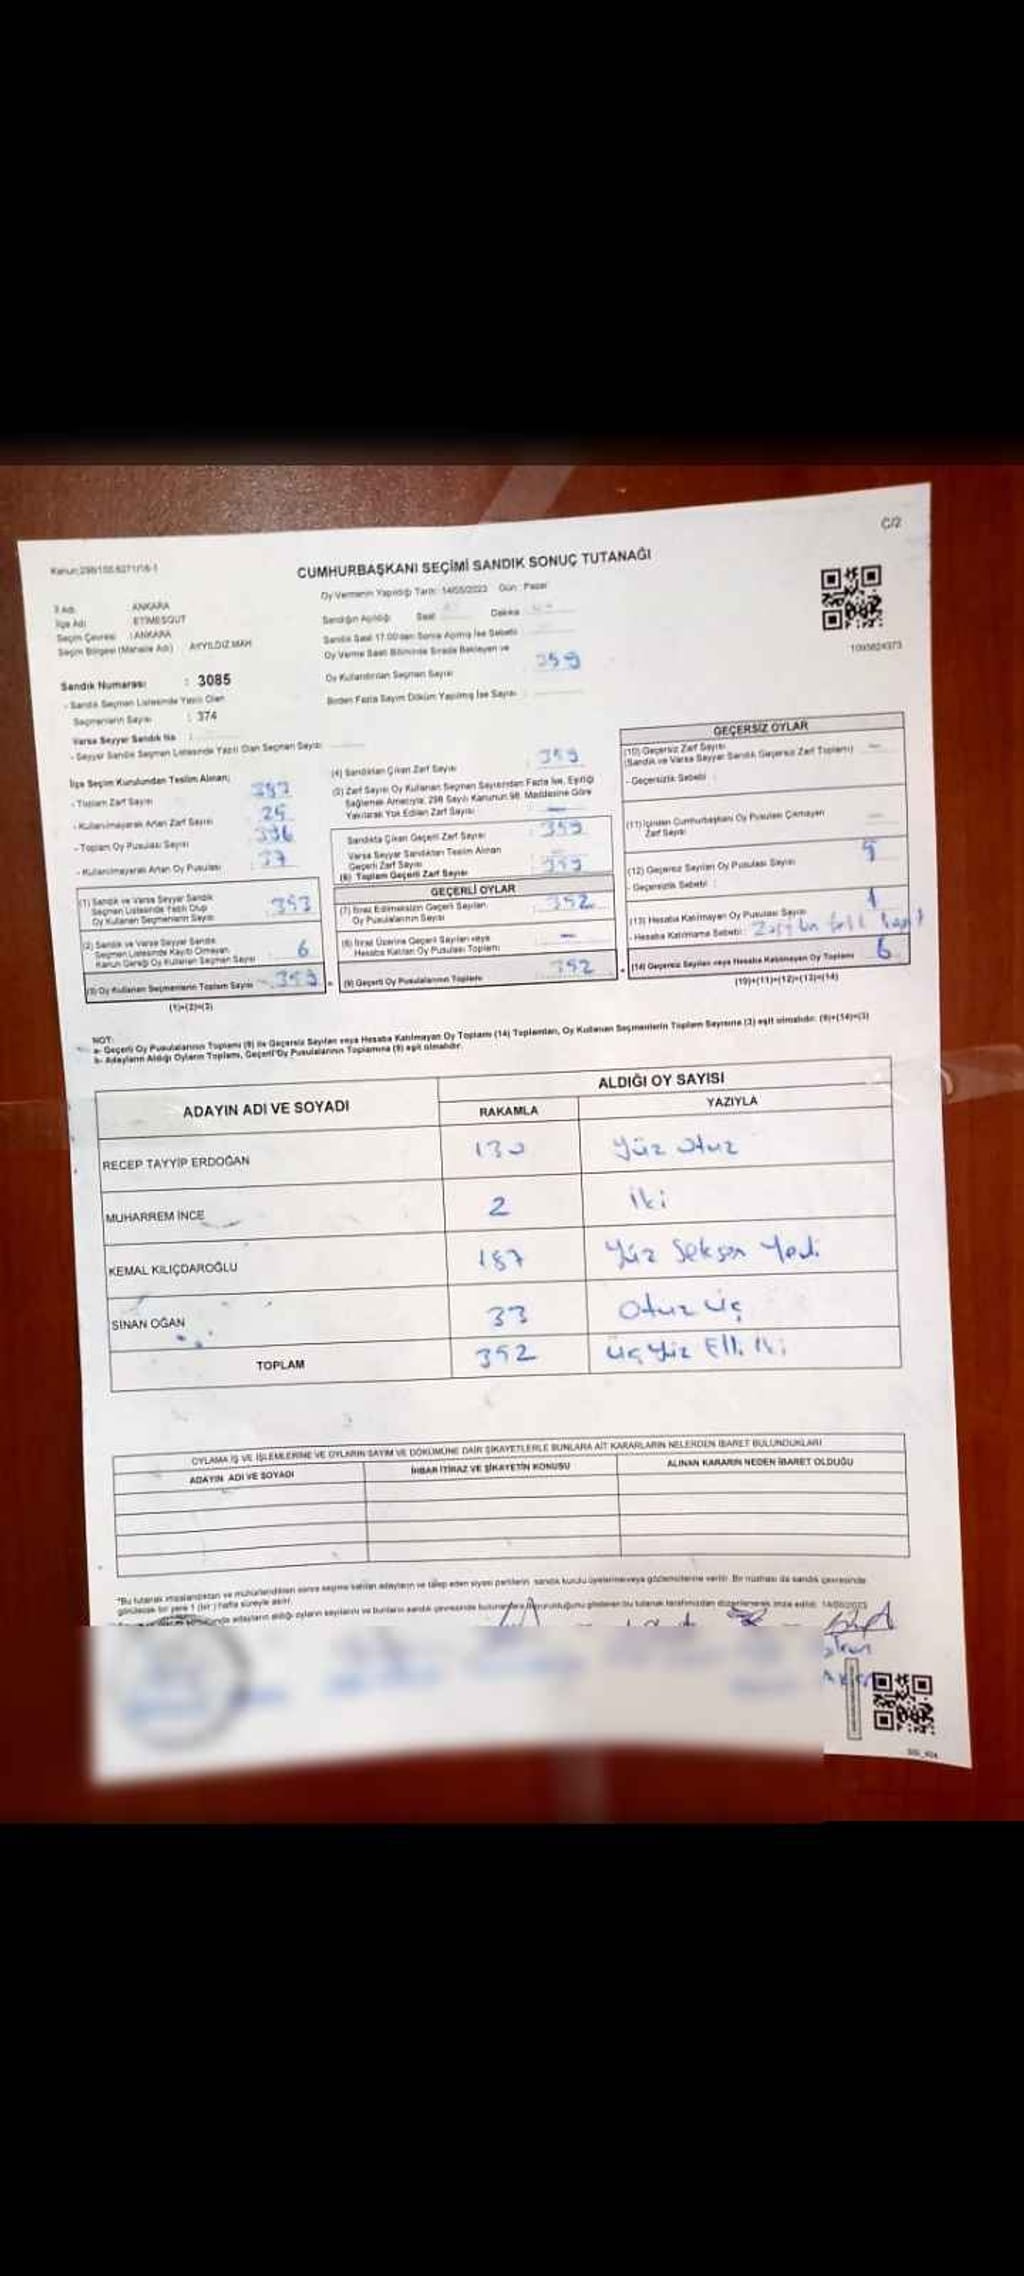 C/2
CUMHURBAŞKANI SEÇİMİ SANDIK SONUÇ TUTANAĞI
Oy Vermenin Yapıldığı Tarih: 14/05/2023 Gün: Pazar
İl Adı : ANKARA
İlçe Adı : ETİMESGUT
Seçim Çevresi : ANKARA
Seçim Bölgesi (Mahalle Adı) : AYYILDIZ MAH
Sandık Numarası : 3085
- Sandık Seçmen Listesinde Yazılı Olan
Seçmenlerin Sayısı : 374
Varsa Seyyar Sandık No :
- Seyyar Sandık Seçmen Listesinde Yazılı Olan Seçmen Sayısı
Sandığın Açıldığı Saat Dakika
Sandık Saat 17.00'den Sonra Açılmış İse Sebebi
Oy Verme Saati Bitiminde Sırada Bekleyen ve
Oy Kullandırılan Seçmen Sayısı
359
Birden Fazla Sayım Döküm Yapılmış İse Sayısı
1095624373
İlçe Seçim Kurulundan Teslim Alınan;
- Toplam Zarf Sayısı
- Kullanılmayarak Artan Zarf Sayısı
- Toplam Oy Pusulası Sayısı
- Kullanılmayarak Artan Oy Pusulası
(1) Sandık ve Varsa Seyyar Sandık
Seçmen Listesinde Yazılı Olup
Oy Kullanan Seçmenlerin Sayısı 353
(2) Sandık ve Varsa Seyyar Sandık
Seçmen Listesinde Kaydı Olmayan
Kanun Gereği Oy Kullanan Seçmen Sayısı 6
(3) Oy Kullanan Seçmenlerin Toplam Sayısı 359
(1)+(2)=(3)
(4) Sandıktan Çıkan Zarf Sayısı 359
(5) Zarf Sayısı Oy Kullanan Seçmen Sayısından Fazla İse, Eşitliği
Sağlamak Amacıyla; 298 Sayılı Kanunun 98. Maddesine Göre
Yakılarak Yok Edilen Zarf Sayısı —
Sandıkta Çıkan Geçerli Zarf Sayısı 359
Varsa Seyyar Sandıktan Teslim Alınan
Geçerli Zarf Sayısı —
(6) Toplam Geçerli Zarf Sayısı 359
GEÇERLİ OYLAR
(7) İtiraz Edilmeksizin Geçerli Sayılan
Oy Pusulalarının Sayısı 352
(8) İtiraz Üzerine Geçerli Sayılan veya
Hesaba Katılan Oy Pusulası Toplamı —
(9) Geçerli Oy Pusulalarının Toplamı 352
GEÇERSİZ OYLAR
(10) Geçersiz Zarf Sayısı
(Sandık ve Varsa Seyyar Sandık Geçersiz Zarf Toplamı) —
- Geçersizlik Sebebi :
(11) İçinden Cumhurbaşkanı Oy Pusulası Çıkmayan
Zarf Sayısı
(12) Geçersiz Sayılan Oy Pusulası Sayısı 5
- Geçersizlik Sebebi :
(13) Hesaba Katılmayan Oy Pusulası Sayısı 1
- Hesaba Katılmama Sebebi:
(14) Geçersiz Sayılan veya Hesaba Katılmayan Oy Toplamı 6
(10)+(11)+(12)+(13)=(14)
NOT:
a- Geçerli Oy Pusulalarının Toplamı (9) ile Geçersiz Sayılan veya Hesaba Katılmayan Oy Toplamı (14) Toplamları, Oy Kullanan Seçmenlerin Toplam Sayısına (3) eşit olmalıdır. (9)+(14)=(3)
b- Adayların Aldığı Oyların Toplamı, Geçerli Oy Pusulalarının Toplamına (9) eşit olmalıdır.
ADAYIN ADI VE SOYADI
ALDIĞI OY SAYISI
RAKAMLA YAZIYLA
RECEP TAYYİP ERDOĞAN 130 Yüz Otuz
MUHARREM İNCE 2 İki
KEMAL KILIÇDAROĞLU 187 Yüz Seksen Yedi
SİNAN OĞAN 33 Otuz üç
TOPLAM 352 Üç Yüz Elli İki
OYLAMA İŞ VE İŞLEMLERİNE VE OYLARIN SAYIM VE DÖKÜMÜNE DAİR ŞİKAYETLERLE BUNLARA AİT KARARLARIN NELERDEN İBARET BULUNDUKLARI
ADAYIN ADI VE SOYADI İHBAR İTİRAZ VE ŞİKAYETİN KONUSU ALINAN KARARIN NEDEN İBARET OLDUĞU
*Bu tutanak imzalandıktan ve mühürlendikten sonra seçime katılan adayların ve talep eden siyasi partilerin sandık kurulu üyelerine/veya gözlemcilerine verilir. Bir nüshası da sandık çevresinde
görülecek bir yere 1 (bir) hafta süreyle asılır.
adayların aldığı oyların sayılarını ve bunların sandık çevresinde bulunanlara duyurulduğunu gösteren bu tutanak tarafımızdan düzenlenerek imza edildi. 14/05/2023